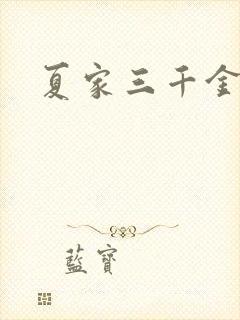 夏家三千金
藍寶